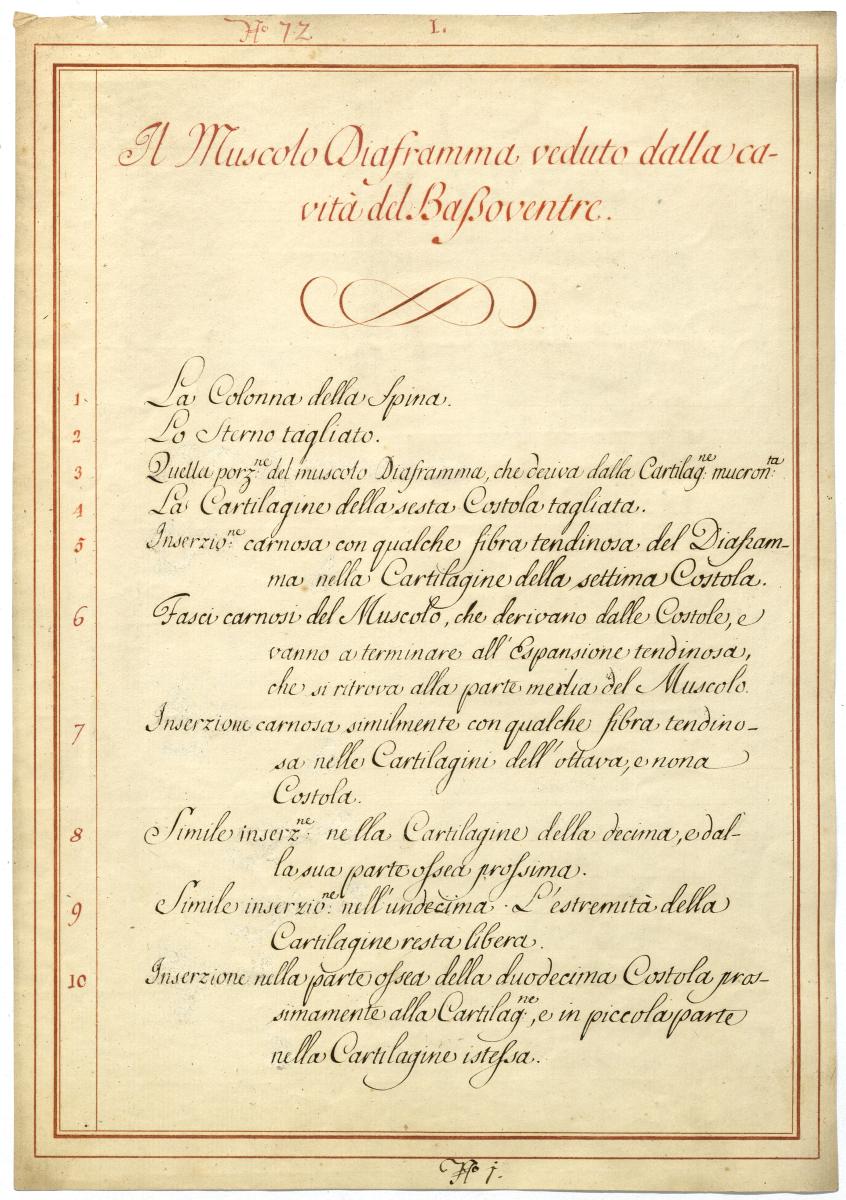 Nº 72 I.
Il Muscolo Diaframma veduto dalla ca-
vità del Baſsoventre.
1. La Colonna della Spina.
2 Lo Sterno tagliato.
3 Quella porz.ne del muscolo Diaframma, che deriva dalla Cartilag.ne mucron.ta
4 La Cartilagine della sesta Costola tagliata.
5 Inserzio.ne carnosa con qualche fibra tendinosa del Diafram-
ma nella Cartilagine della settima Costola.
6 Fasci carnosi del Muscolo, che derivano dalle Costole, e
vanno a terminare all'Espansione tendinosa,
che si ritrova alla parte media del Muscolo.
7 Inserzione carnosa similmente con qualche fibra tendino-
sa nelle Cartilagini dell'ottava, e nona
Costola.
8 Simile inserz.ne nella Cartilagine della decima, e dal-
la sua parte oſsea proſsima.
9 Simile inserzio.ne nell'undecima. L'estremità della
Cartilagine resta libera.
10 Inserzione nella parte oſsea della duodecima Costola pros-
simamente alla Cartilag.ne, e in piccola parte
nella Cartilagine isteſsa.
Nº j.